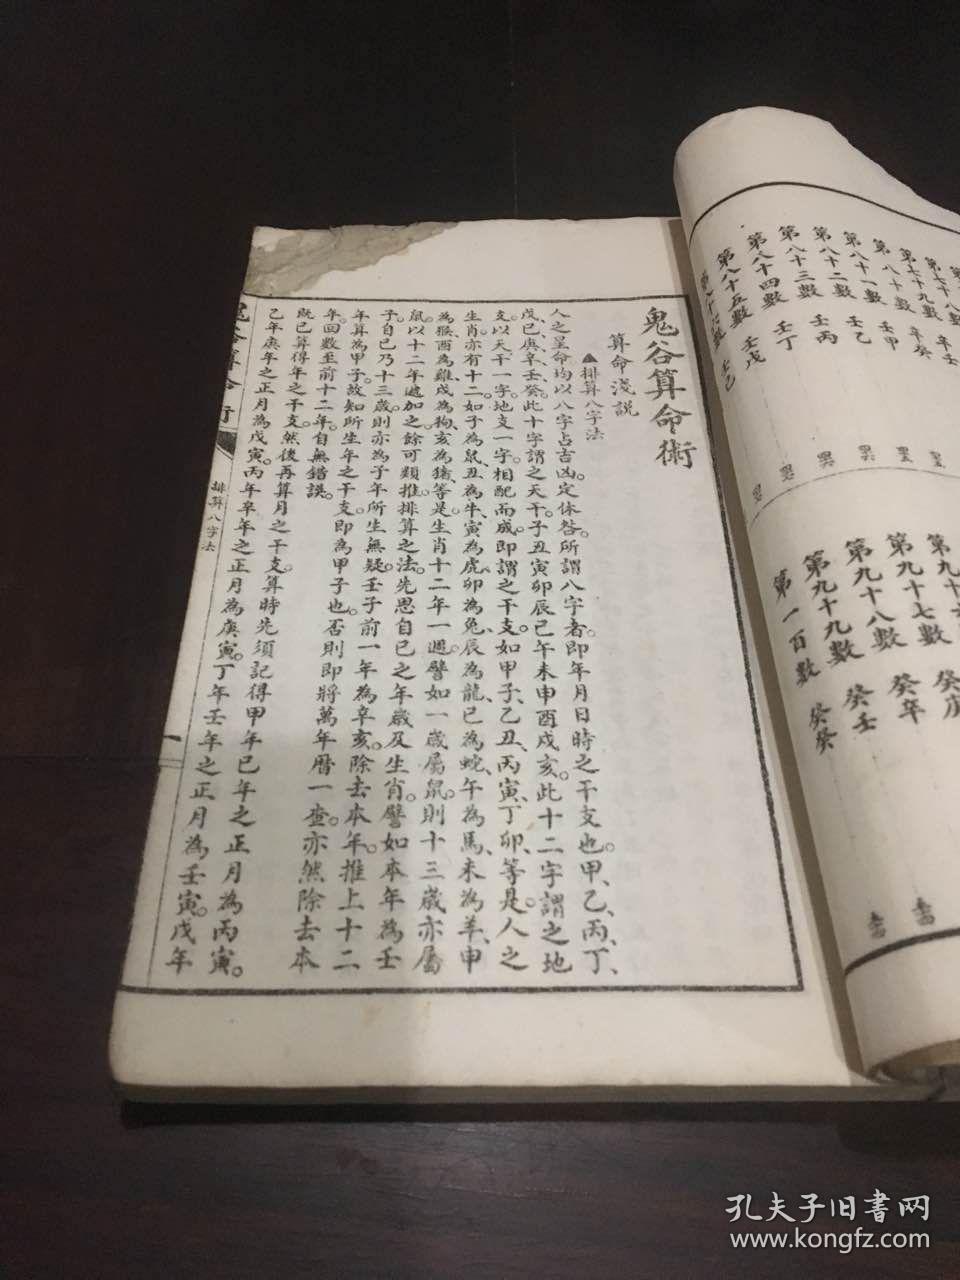 第七十八數
第七十九數 辛壬
第八十數 辛癸
第八十一數 壬甲
第八十二數 壬乙
第八十三數 壬丙
第八十四數 壬丁
第八十五數 壬戊
第八十六數 壬己
第九十七數 癸庚
第九十八數 癸辛
第九十九數 癸壬
第一百數 癸癸
鬼谷算命術
算命淺説
▲排算八字法
人之星命均以八字占吉凶。定休咎。所謂八字者。即年月日時之干支也。甲、乙、丙、丁、
戊、己、庚、辛、壬、癸。此十字謂之天干。子丑寅卯辰巳午未申酉戌亥。此十二字謂之地
支。以天干一字。地支一字。相配而成。即謂之干支。如甲子、乙丑、丙寅、丁卯、等是。人之
生肖亦有十二。如子為鼠、丑為牛、寅為虎、卯為兔、辰為龍、巳為蛇、午為馬、未為羊、申
為猴、酉為雞、戌為狗、亥為猪、等是。生肖十二年一週。譬如一歲屬鼠。則十三歲亦屬
鼠。以十二年遞加之。餘可類推。排算之法。先思自己之年歲及生肖。譬如本年為壬
子。自己乃十三歲。則亦為子年所生無疑。壬子前一年為辛亥。除去本年。推上十二
年。算為甲子。故知所生年之干支。即為甲子也。否則即將萬年曆一查。亦然除去本
年。回數至前十二年。自無錯誤。
既已算得年之干支。然後再算月之干支。算時先須記得甲年己年之正月為丙寅。
乙年庚年之正月為戊寅。丙年辛年之正月為庚寅。丁年壬年之正月為壬寅。戊年
鬼谷算命術
排算八字法
一
孔夫子旧書网
www.kongfz.com